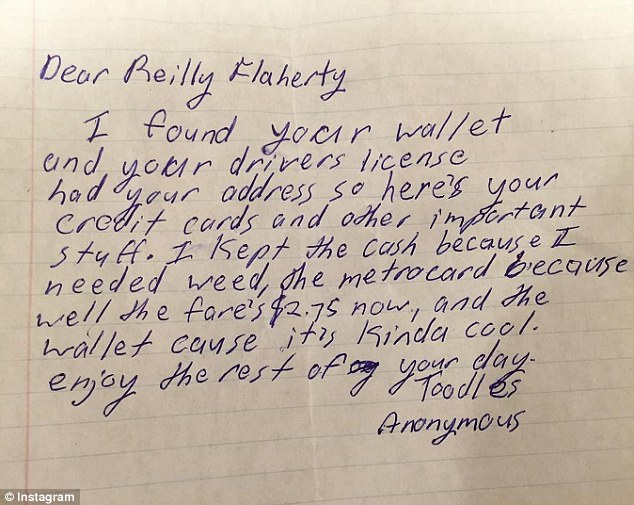 Dear Reilly Flaherty
I found your wallet
and your drivers license
had your address so here's your
credit cards and other important
stuff. I kept the cash because I
needed weed, the metrocard because
well the fare's $2.75 now, and the
wallet cause it's kinda cool.
enjoy the rest of your day.
Toodles
Anonymous
© Instagram